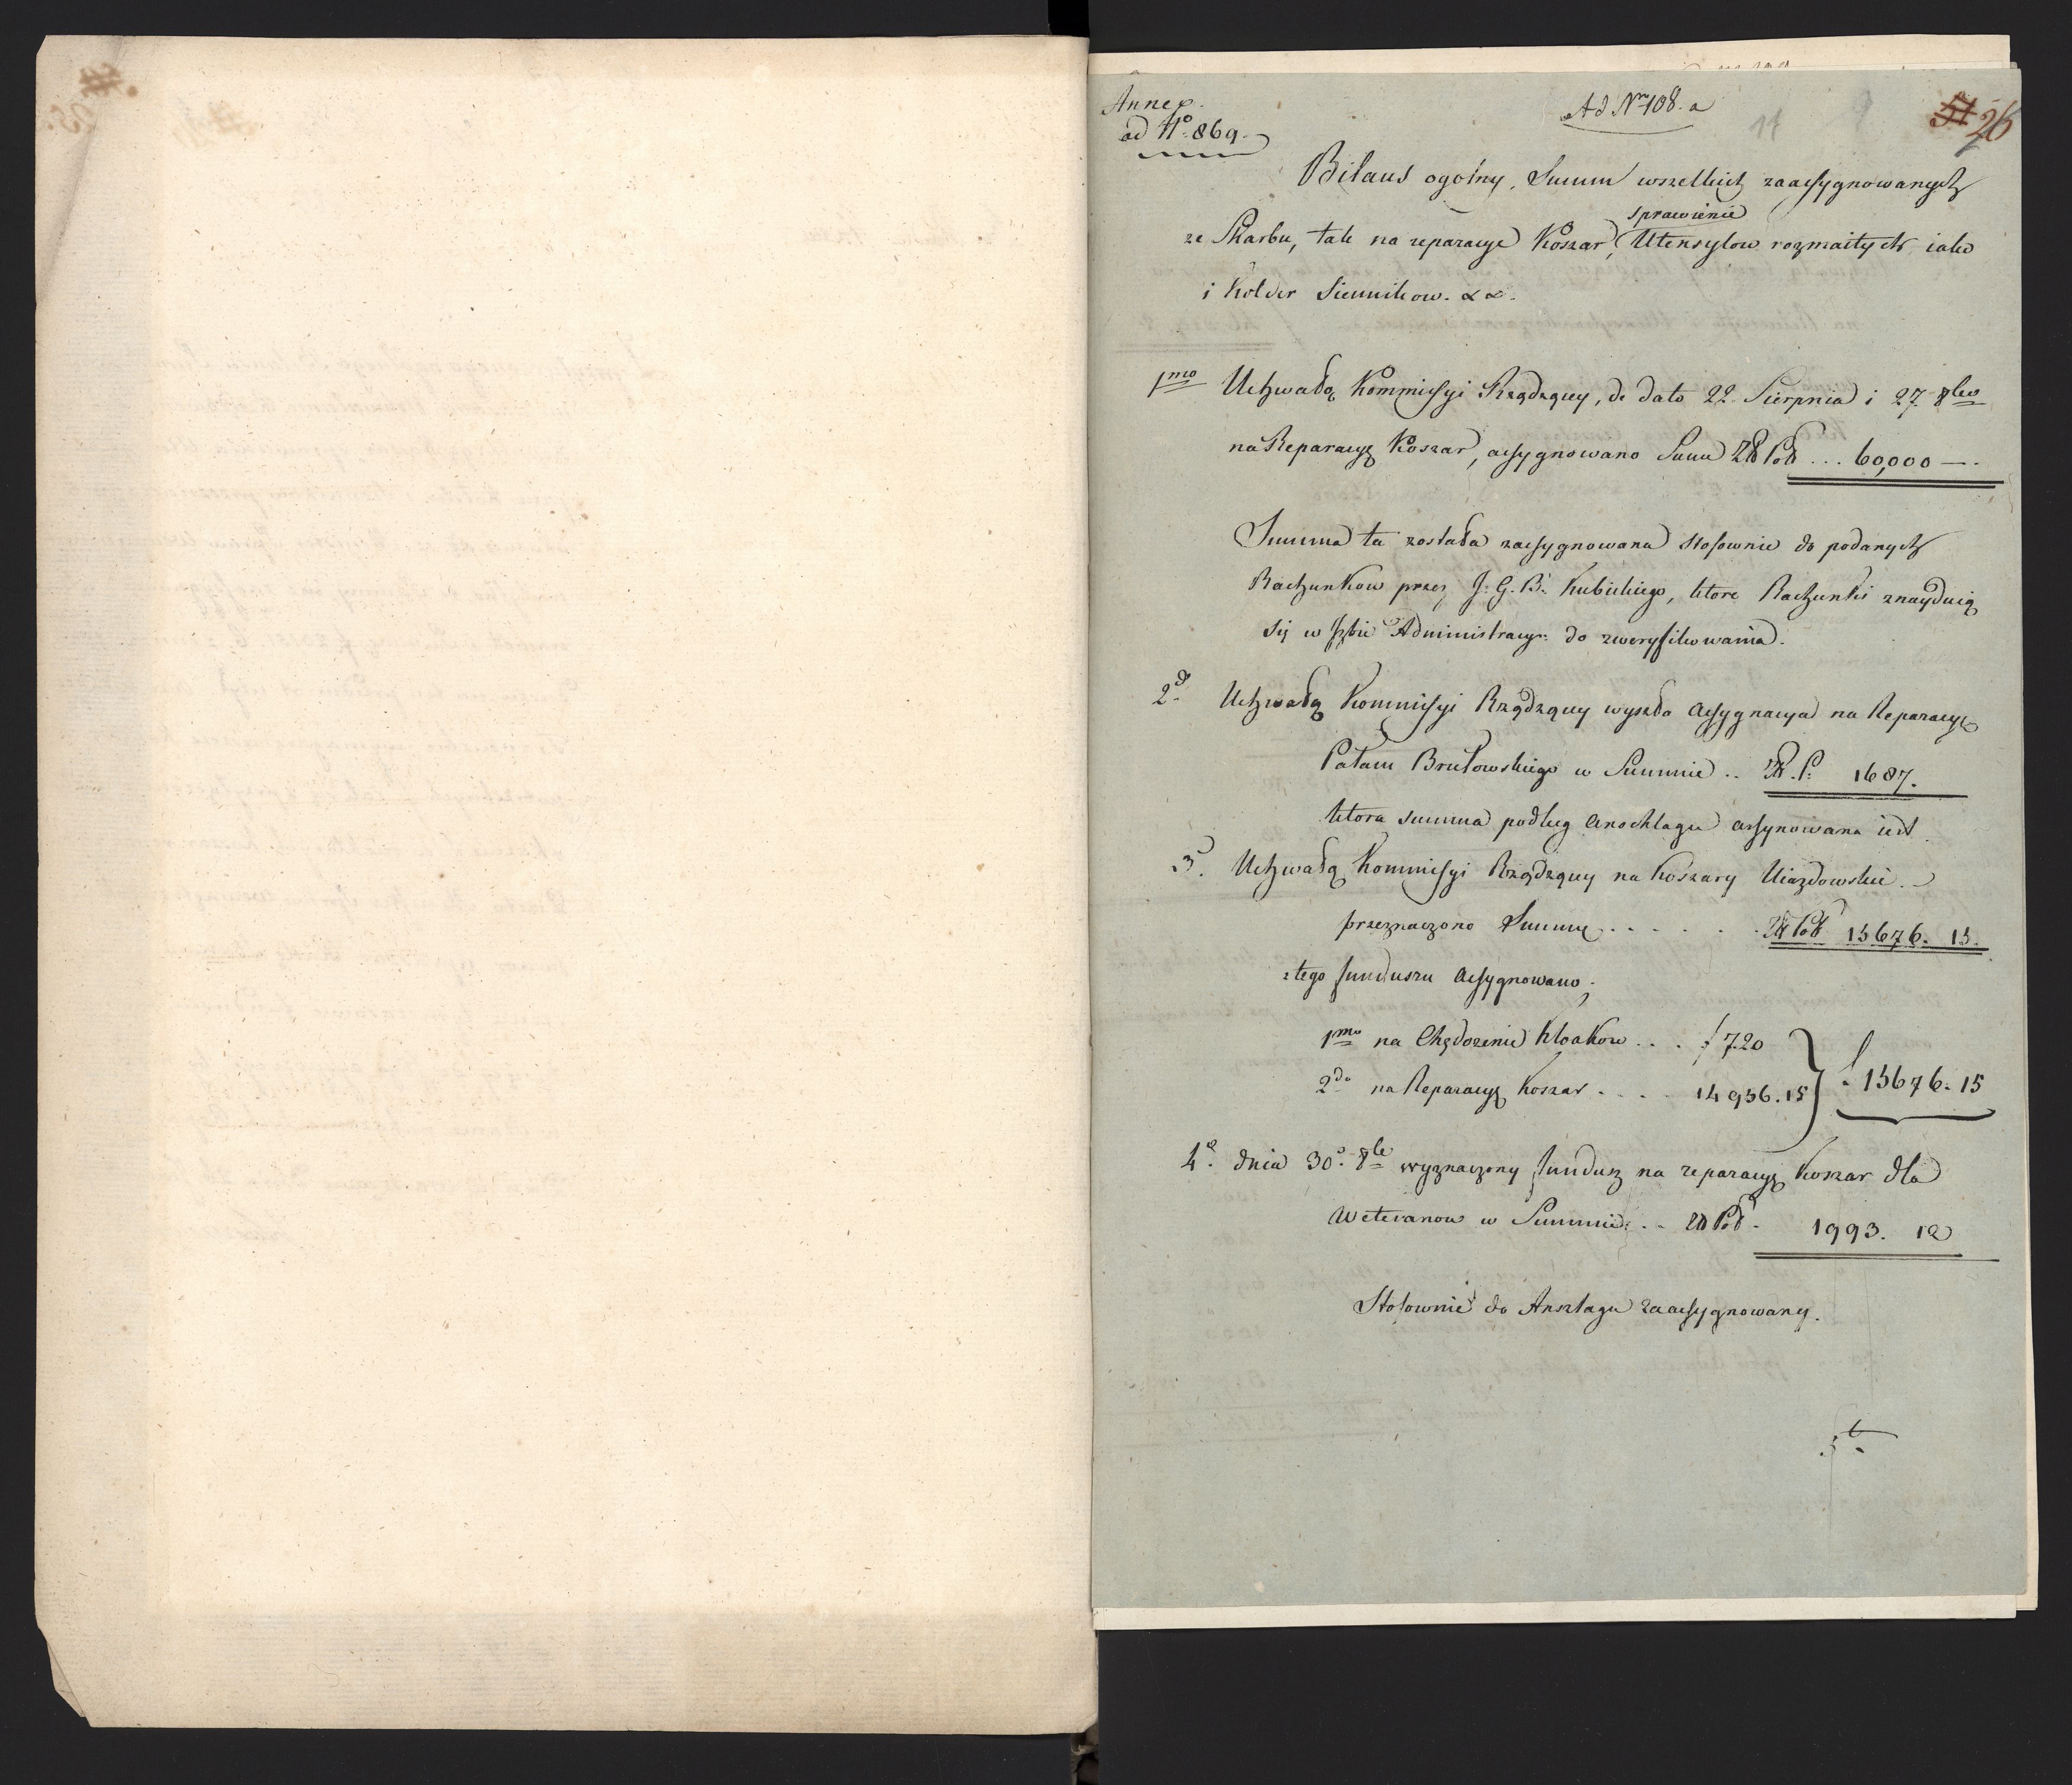 Annex.
ad No. 869.
Ad Nro 108. a
17
26
Bilans ogolny, Summ wszelkich zaassygnowanych
sprawienie
ze Skarbu, tak na reparacye Koszar, Utensylow rozmaitych iako
i Kolder Siennikow. &&.
1mo Uchwałą Kommissyi Rządzącey, de dato 22 Sierpnia i 27 8bra
na Reparacyę Koszar, assygnowano Sum Zł Pol ... 60,000 —.
Summa ta została zassygnowana stosownie do podanych
Rachunkow przez J. G. B. Kubickiego, ktore Rachunki znayduią
się w Izbie Administracyi: do zweryfikowania.
2do Uchwałą Kommissyi Rządzącey wyszła assygnacya na Reparacyę
Pałacu Brulowskiego w Summie .. Zł. P. 1687.
ktora summa podług Anschlagu assynowana iest.
3. Uchwałą Kommissyi Rządzącey na Koszary Uiazdowskie.
przeznaczono Summę . . . . . Zł Pol 15676. 15.
z tego funduszu Assygnowano;
1mo na Chędożenie Kloakow . . . f 720
2do na Reparacyę Koszar . . . . 14956. 15 } f. 15676. 15
4o. dnia 30o. 8br wyznaczony fundusz na reparacyę Koszar dla
Weteranow w Summie . . Zł Pol. 1993. 12
Stosownie do Anszlagu zaassygnowany.
5t.